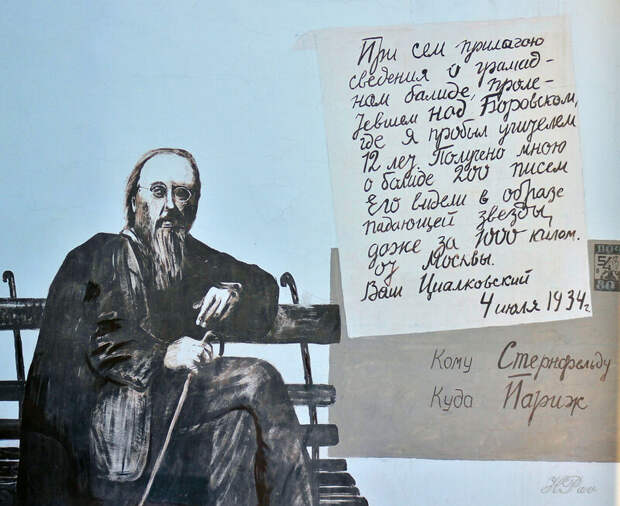 При сем прилагаю
сведения о грамад-
ном балиде, проле-
тевшем над Боровском,
где я пробыл учителем
12 лет. Получено мною
о балиде 200 писем
Его видели в образе
падающей звезды,
даже за 1000 килом.
от Москвы.
Ваш Циалковский
4 июля 1934 г.
Кому Стернфельду
Куда Париж
80
НРав